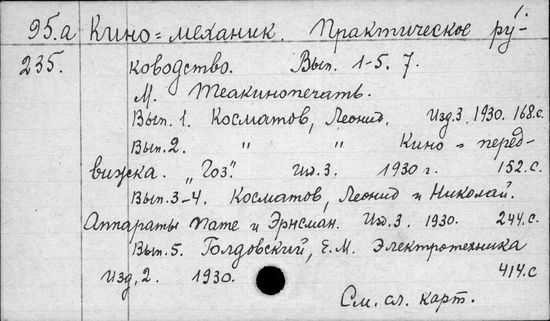 1.
95.а Кино=механик. Практическое ру-
235. ководство. Вып. 1-5. 7.
М. Теакинопечать.
Вып. 1. Косматов, Леонид. Изд. 3. 1930. 168.с.
Вып. 2. " " Кино-перед-
вижка. „Гоз". Изд. 3. 1930 г. 152.с.
Вып. 3-4. Косматов, Леонид и Николай.
Аппараты Пате и Эрнеман. Изд. 3. 1930. 244.с.
Вып. 5. Голдовский, Е.М. Электротехника
Изд. 2. 1930. 414.с
См. сл. карт.